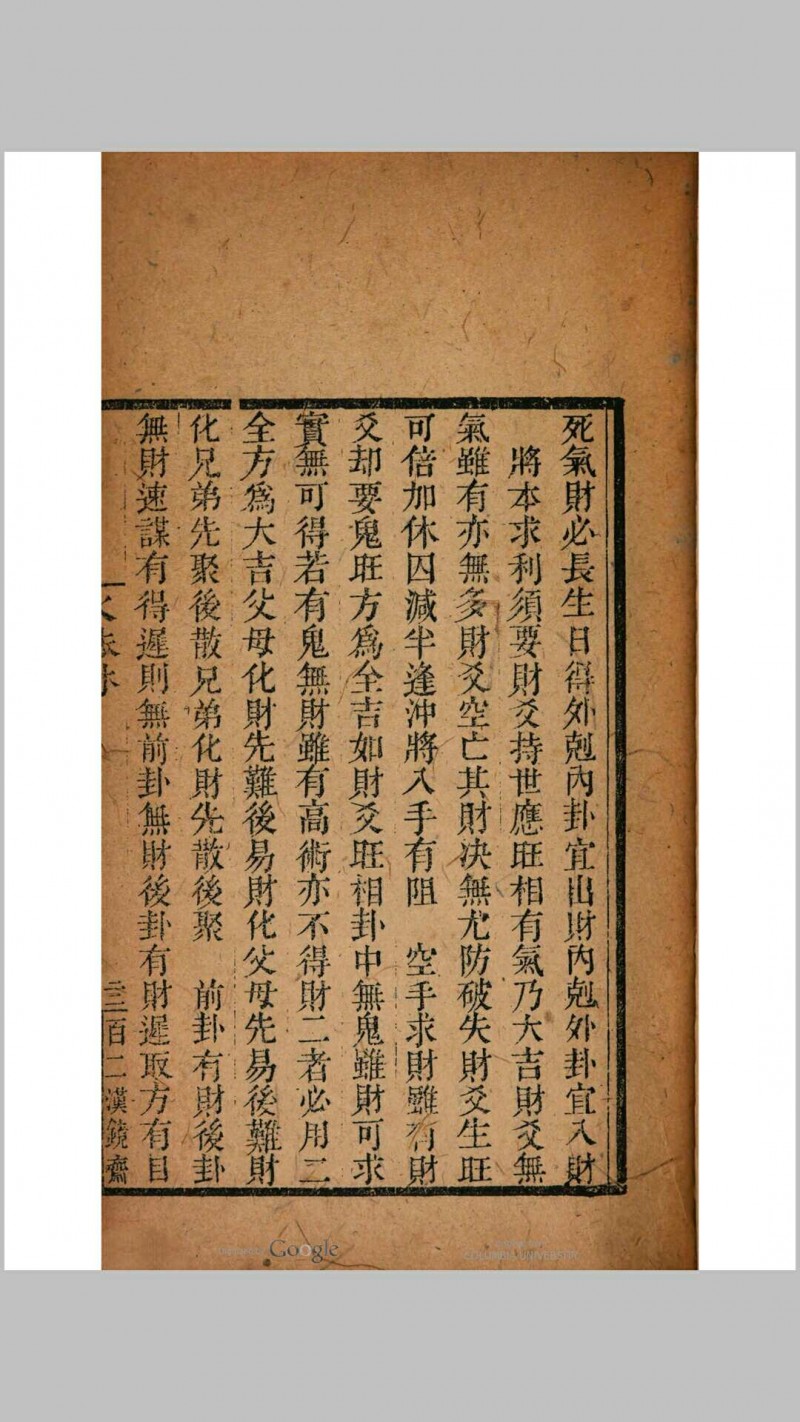 死氣財必長生日得外剋內卦宜出財內剋外卦宜入財
將本求利須要財爻持世應旺相有氣乃大吉財爻無
氣雖有亦無多財爻空亡其財决無尤防破失財爻生旺
可倍加休囚減半逢沖將入手有阻 空手求財雖有財
爻却要鬼旺方為全吉如財爻旺相卦中無鬼雖財可求
實無可得若有鬼無財雖有高術亦不得財二者必用二
全方為大吉父母化財先難後易財化父母先易後難財
化兄弟先聚後散兄弟化財先散後聚 前卦有財後卦
無財速謀有得遲則無前卦無財後卦有財遲取方有目
三百二 漢鏡齋
Google